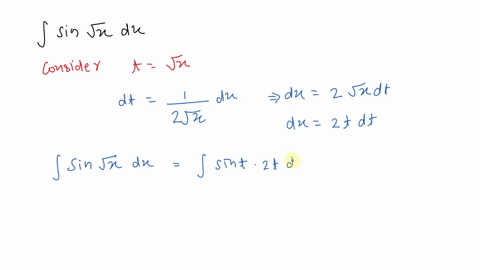 ∫ sin √x dx
Consider t = √x
dt = 1/(2√x) dx ⇒ dx = 2 √x dt
dx = 2t dt
∫ sin √x dx = ∫ sin t · 2t d